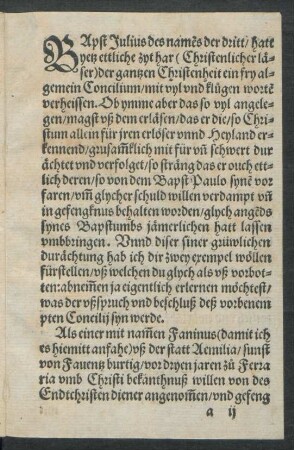 BApst Julius des namēs der dritt/ hatt
yetz ettliche zyt har (Christenlicher lä-
ser) der gantzen Christenheit ein fry al-
gemein Concilium/ mit vyl vnd klůgen wortē
verheissen. Ob ymme aber das so vyl angele-
gen/ magst vß dem erläsen/ das er die/ so Chri-
stum allein für jren erlöser vnnd Heyland er-
kennend/ grusamklich mit für vn̄ schwert dur
ächtet vnd verfolget/ so sträng das er ouch ett-
lich deren/ so von dem Bapst Paulo synē vor
faren/ vm̄ glycher schuld willen verdampt vn̄
in gefengknus behalten worden/ glych angēds
synes Bapstumbs jämerlichen hatt lassen
vmbbringen. Vnnd diser siner grüwlichen
durächtung hab ich dir zwey exempel wöllen
fürstellen/ vß welchen du glych als vß vorbot-
ten: abnem̄en ja eigentlich erlernen möchtest/
was der vßspruch vnd beschluß deß vorbenem
pten Concilij syn werde.
Als einer mit nam̄en Faninus (damit ich
es hiemitt anfahe) vß der statt Aemilia/ sunst
von Fauentz burtig/ vor dryen jaren zů Ferra
ria vmb Christi bekanthnuß willen von des
Endtchristen diener angenom̄en/ vnd gefeng
a ij